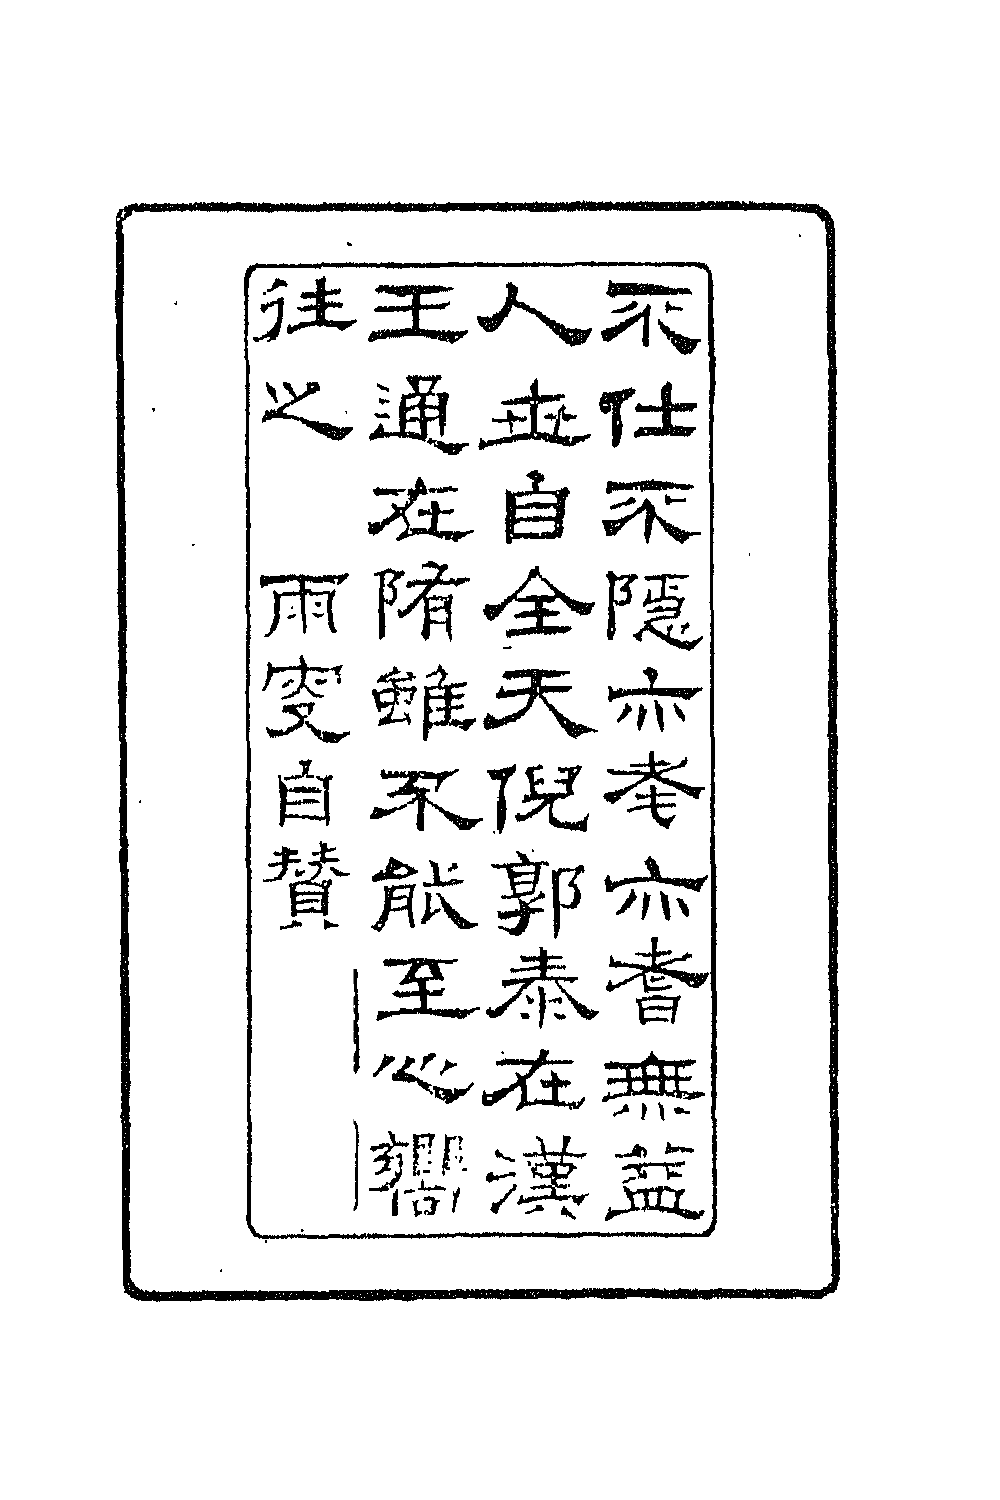 不仕不隱亦耄亦耆無益
人世自全天倪郭泰在漢
王通在隋雖不能至心嚮
往之　雨叟自贊